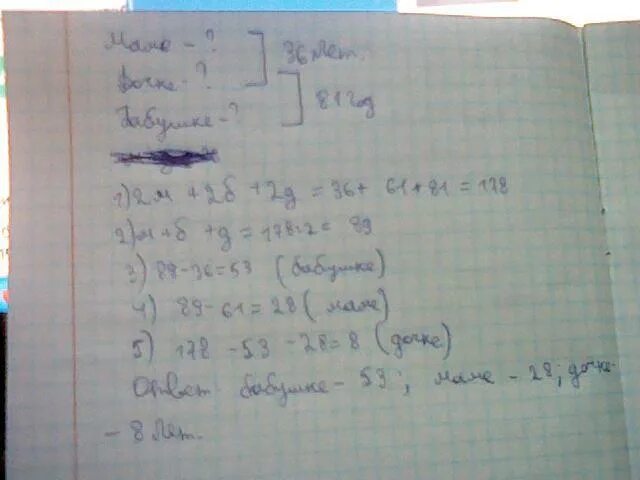 Маме - ?
36 лет.
Дочке - ?
81 год
Бабушке - ?
1) 2м + 2б + 2д = 36 + 61 + 81 = 178
2) м + б + д = 178:2 = 89
3) 89 - 36 = 53 (бабушке)
4) 89 - 61 = 28 (маме)
5) 178 - 53 - 28 = 8 (дочке)
Ответ бабушке - 53; маме - 28; дочке
- 8 лет.